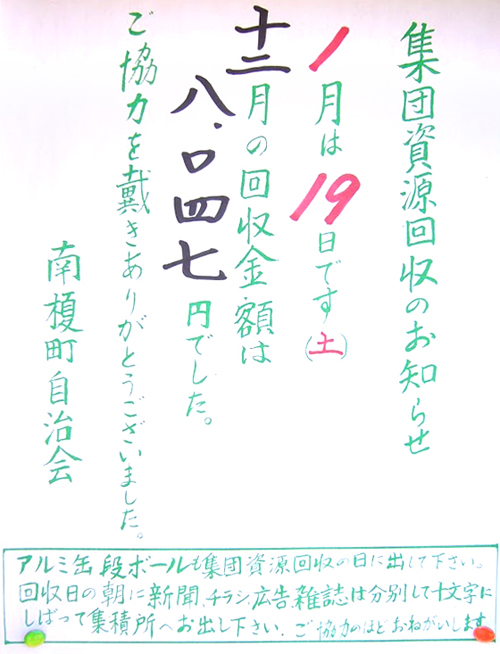 集団資源回収のお知らせ
1月は19日です(土)
十二月の回収金額は
八.〇四七円でした。
ご協力を戴きありがとうございました。
南榎町自治会
アルミ缶、段ボールも集団資源回収の日に出して下さい。
回収日の朝に新聞、チラシ、広告、雑誌は分別して十文字に
しばって集積所へお出し下さい、ご協力のほどおねがいします